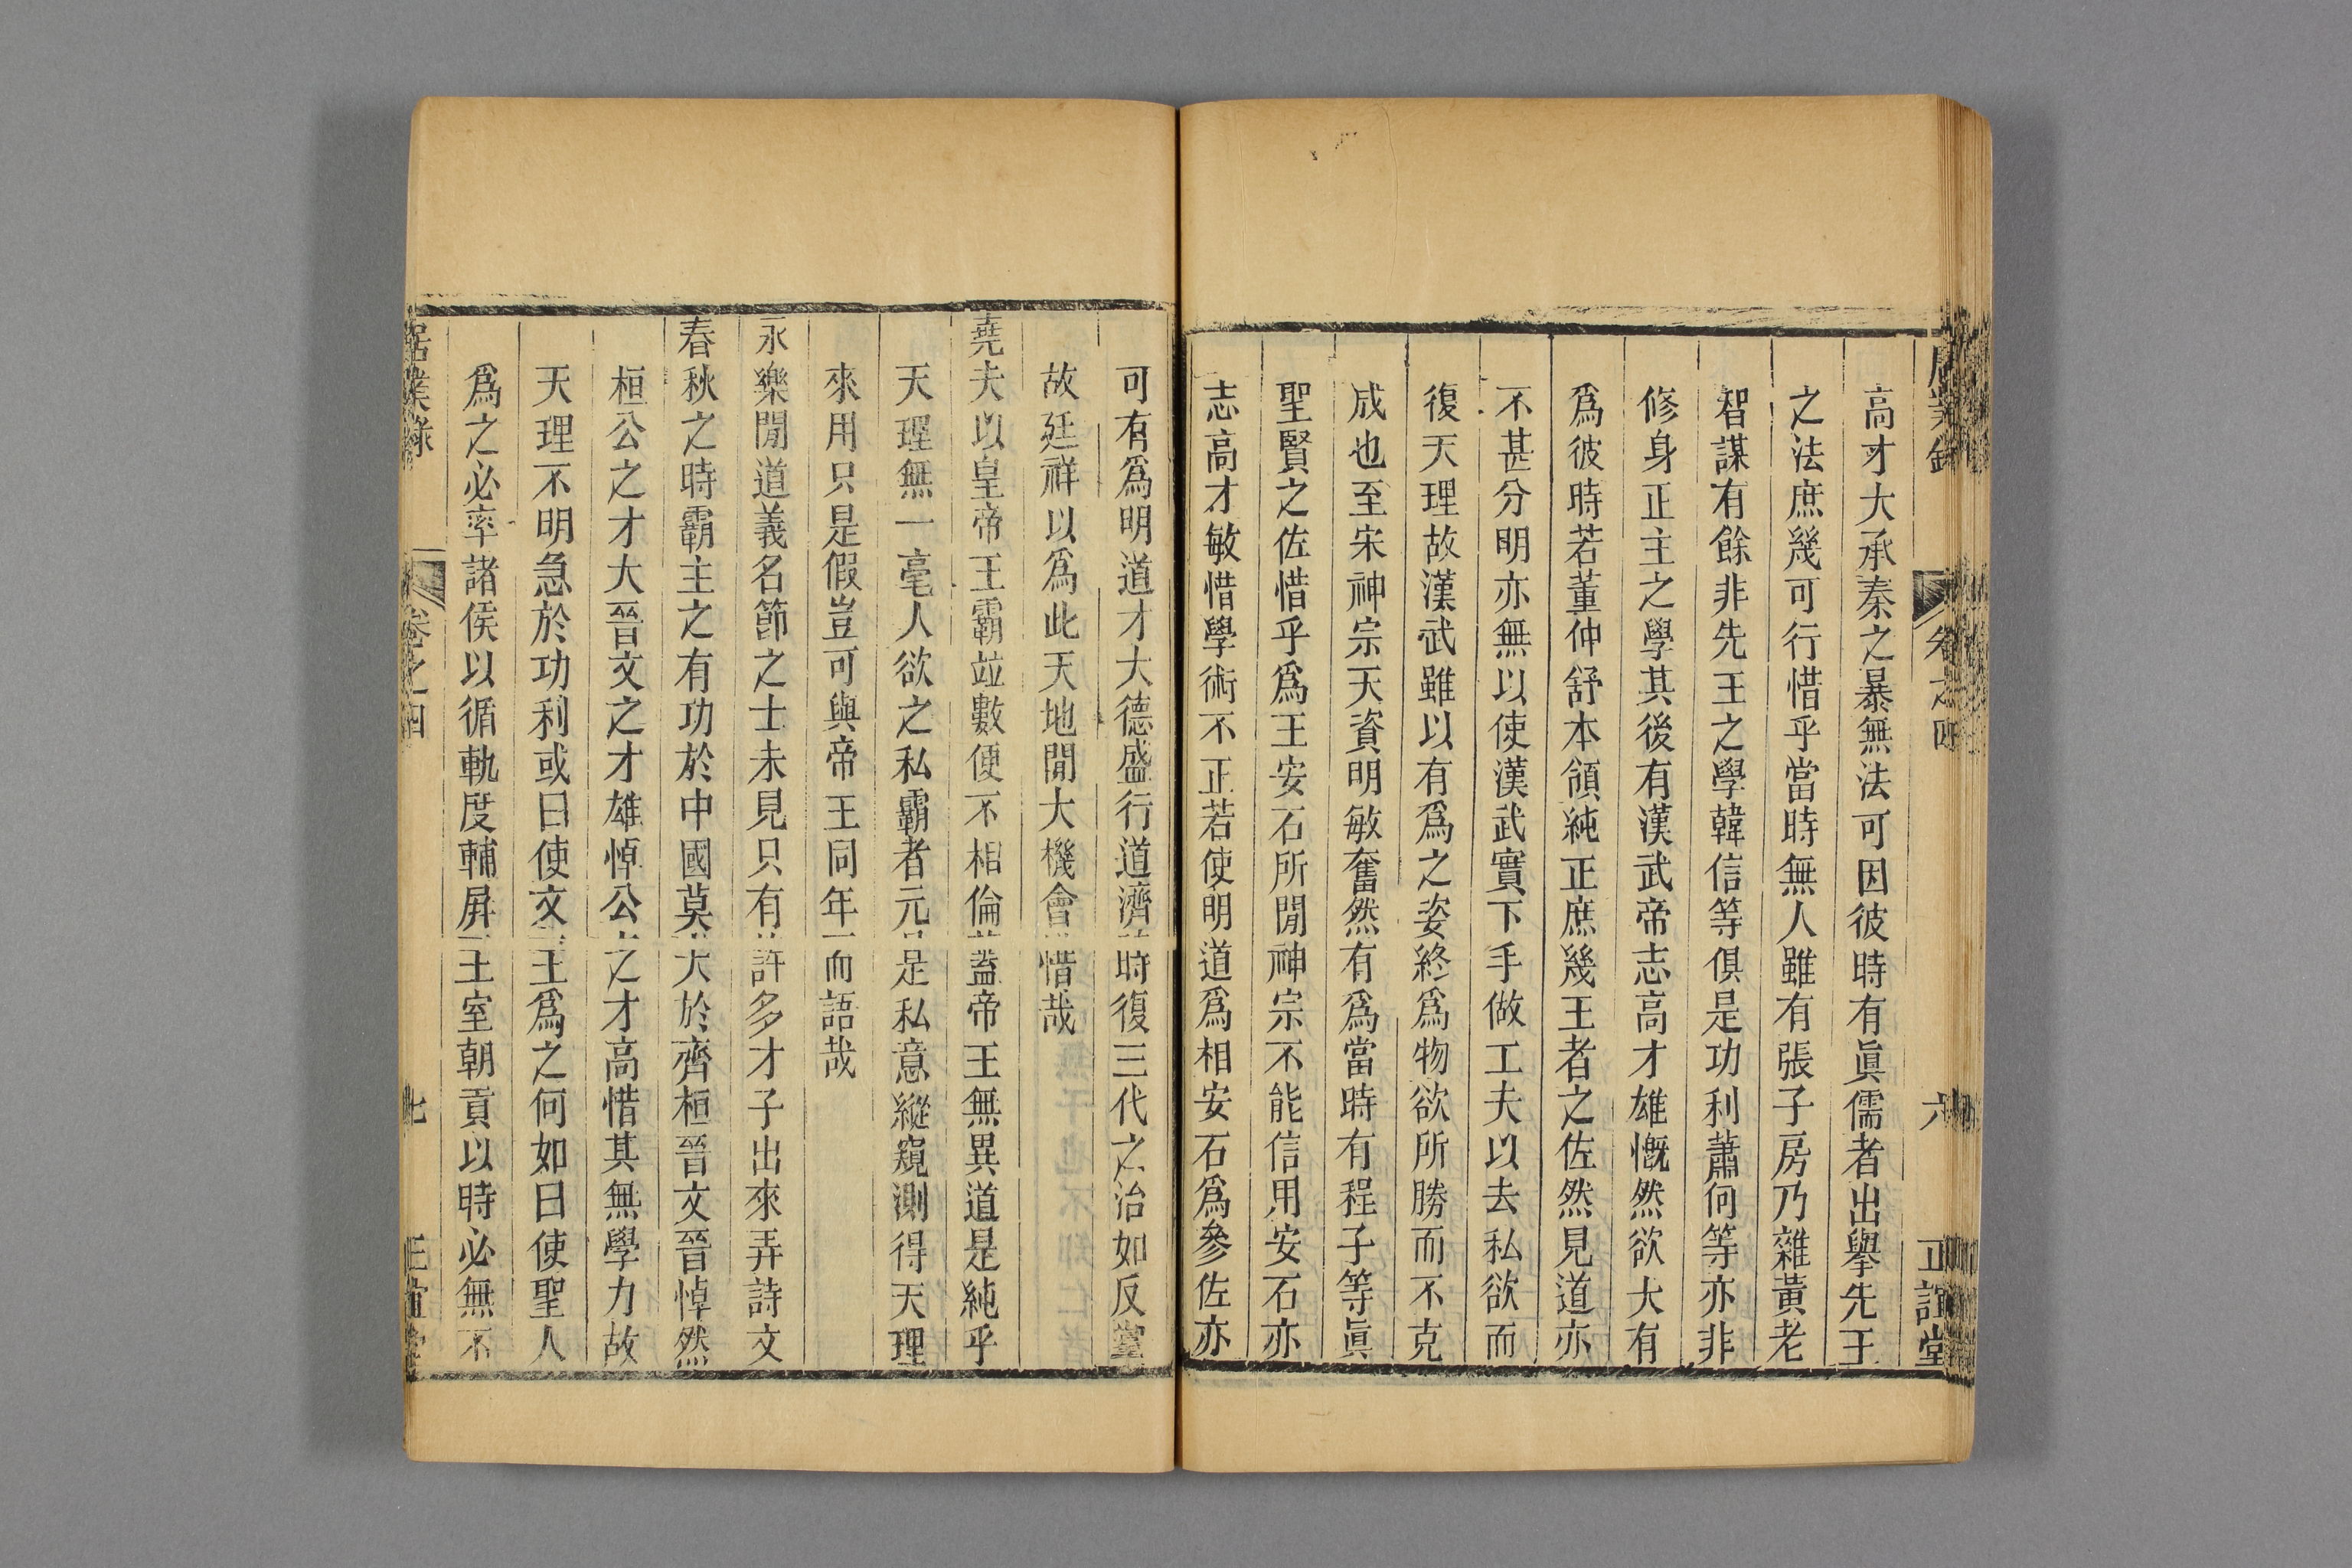 居業錄 卷之四 六 正誼堂
高才大承秦之暴無法可因彼時有眞儒者出擧先王
之法庶幾可行惜乎當時無人雖有張子房乃雜黃老
智謀有餘非先王之學韓信等俱是功利蕭何等亦非
修身正主之學其後有漢武帝志高才雄慨然欲大有
爲彼時若董仲舒本領純正庶幾王者之佐然見道亦
不甚分明亦無以使漢武實下手做工夫以去私欲而
復天理故漢武雖以有爲之姿終爲物欲所勝而不克
成也至宋神宗天資明敏奮然有爲當時有程子等眞
聖賢之佐惜乎爲王安石所閒神宗不能信用安石亦
志高才敏惜學術不正若使明道爲相安石爲參佐亦
可有爲明道才大德盛行道濟時復三代之治如反掌
故廷祥以爲此天地閒大機會惜哉
堯夫以皇帝王霸竝數便不相倫蓋帝王無異道是純乎
天理無一毫人欲之私霸者元是私意縱窺測得天理
來用只是假豈可與帝王同年而語哉
永樂閒道義名節之士未見只有許多才子出來弄詩文
春秋之時霸主之有功於中國莫大於齊桓晉文晉悼然
桓公之才大晉文之才雄悼公之才高惜其無學力故
天理不明急於功利或曰使文王爲之何如曰使聖人
爲之必率諸侯以循軌度輔屏王室朝貢以時必無不
居業錄 卷之四 七 正誼堂